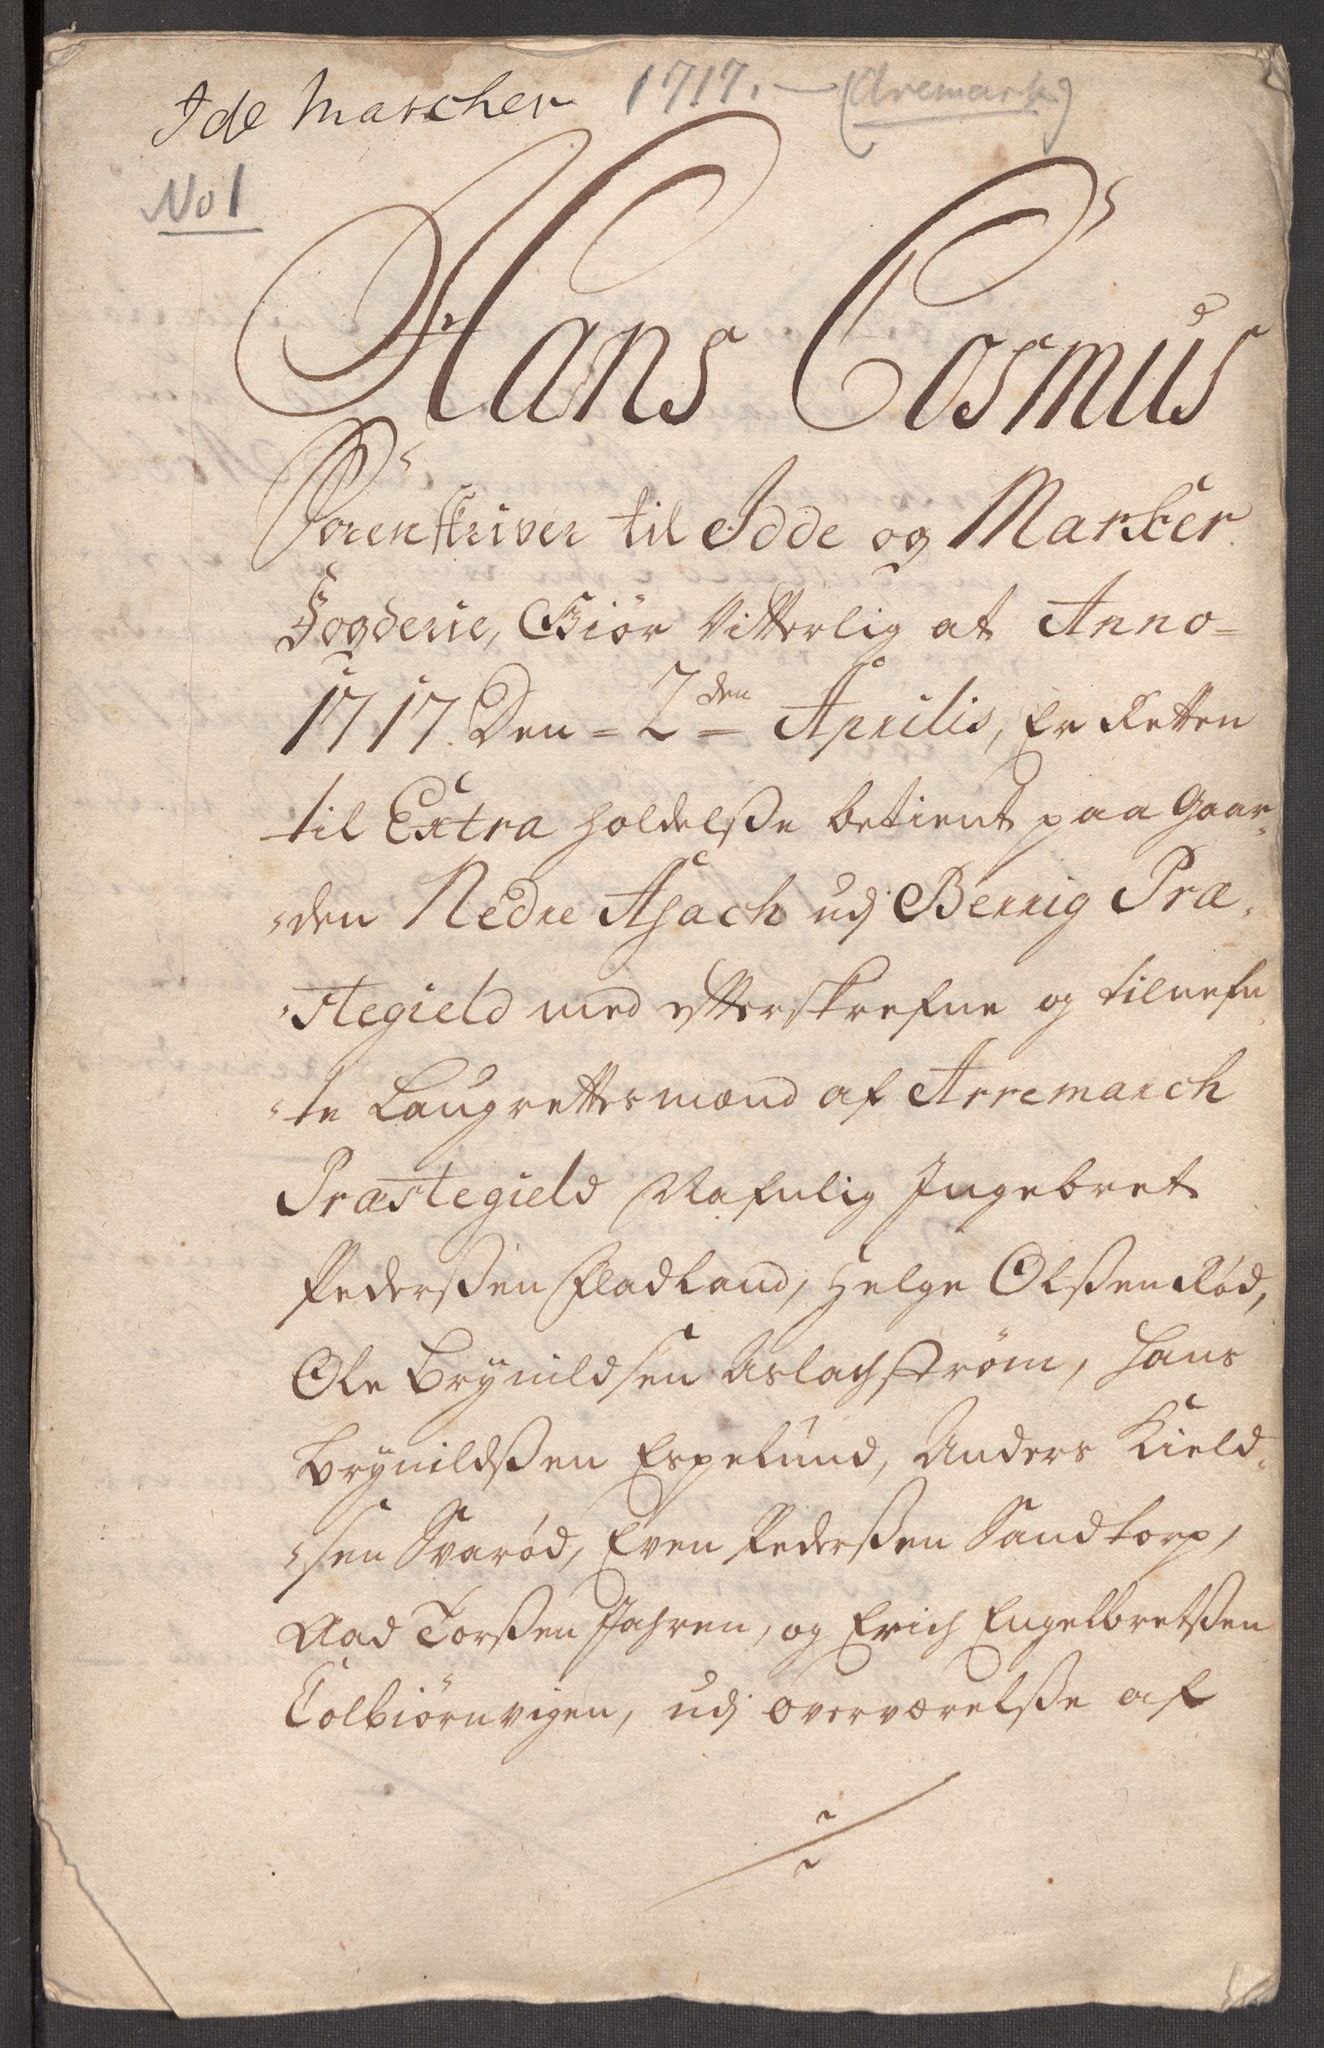 Ide Marcher 1717. — (Aremark)
No 1
Hans Cosmus
Sorenskriver til Idde og Marker
Fogderie, Giör Vitterlig at Anno
1717. Den = 2den Aprilis, Er Retten
til Extra holdelsse betient paa Gaar-
den Nedre Asach udj Berrig Præ-
stegield med efterskrefne og tilnefn
te Laugrettesmænd af Arremarch
Præstegield Nafnlig Ingebret
Pederssen Fladland, Helge Olssen Röd,
Ole Brynildsen Aslachström, Hans
Brynildssen Espelund, Anders Kield-
sen Svaröd, Even Pederssen Sandtorp,
Aad Torssen Jahren, og Erich Engelbretssen
Colbiörnvigen, udj overværelsse af